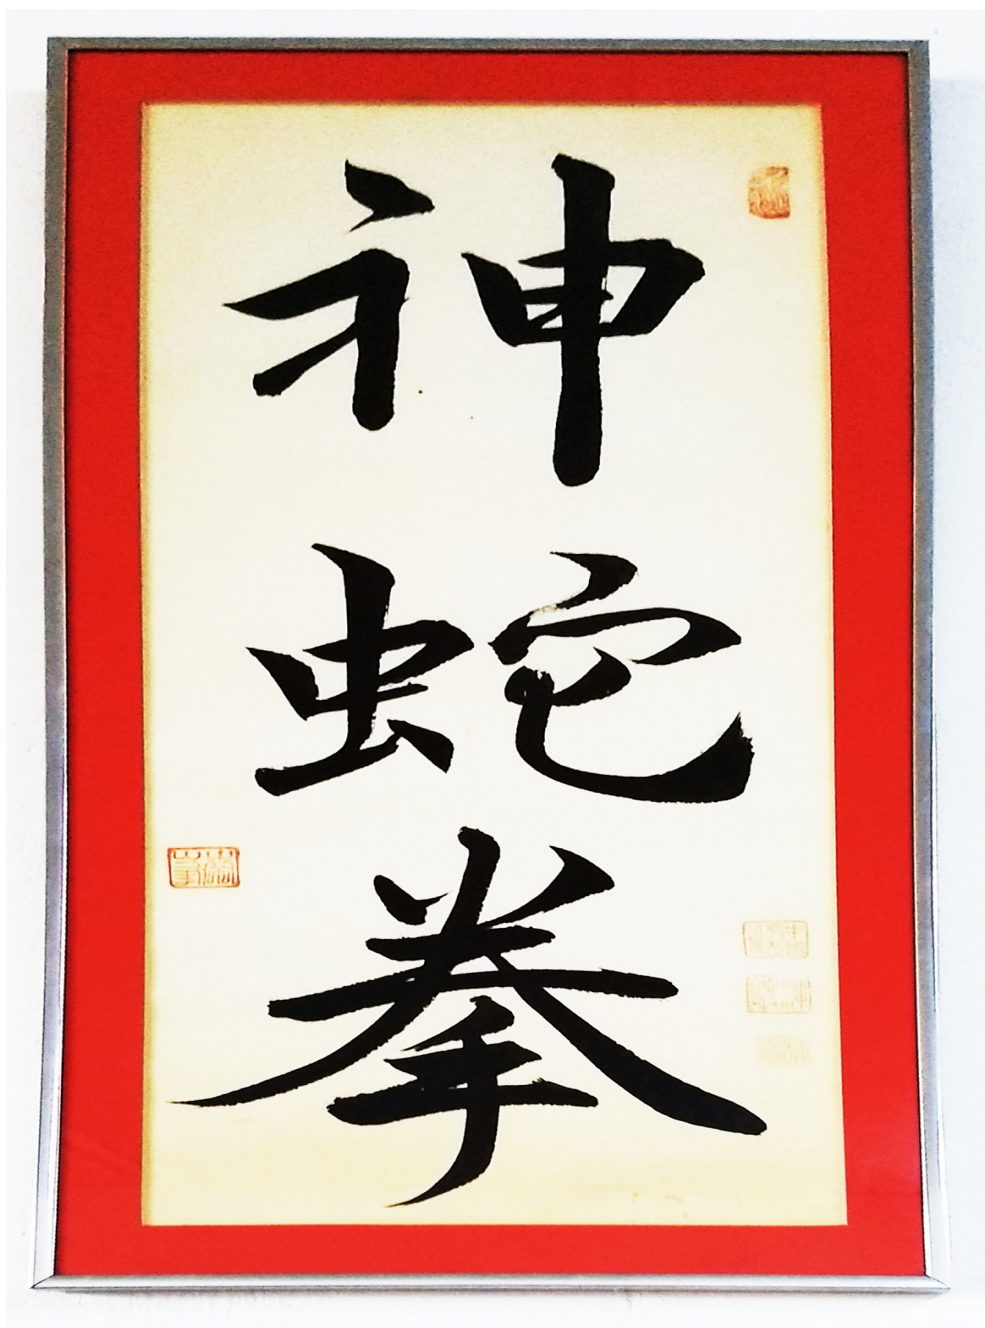 神
蛇
拳